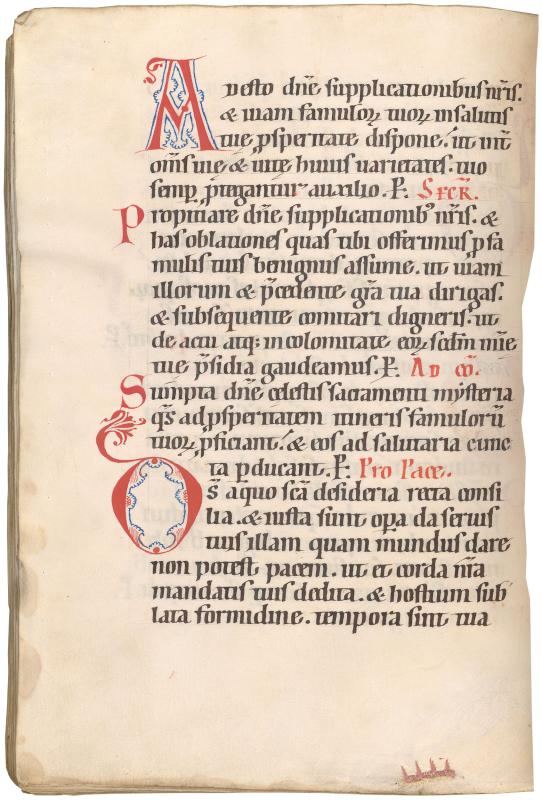 Adesto dn̄e supplicationibus nr̄is.
& uiam famuloꝝ tuoꝝ in salutis
tue ꝓsperitate dispone. ut int̄
om̄s uie & uite huius uarietates. tuo
semp̲ p̄tegantur auxilio. P̲. Secr̄.
Propitiare dn̄e supplicationibꝰ nr̄is. &
has oblationes quas tibi offerimus ꝓ fa
mulis tuis benignus assume. ut uiam
illorum & p̄cedente gr̄a tua dirigas.
& subsequente comitari digneris. ut
de actu atq: incolomitate eoꝝ scd̄m mīe
tue p̄sidia gaudeamus. P̲. Ad co̅.
Sumpta dn̄e celestis sacramenti mysteria
qs̄ ad ꝓsperitatem itineris famulorū
tuoꝝ ꝓficiant. & eos ad salutaria cunc
ta ꝑducant. P̲. Pro Pace.
Ds̄ a quo sc̄a desideria recta consi
lia. & iusta sunt oꝑa da seruis
tuis illam quam mundus dare
non potest pacem. ut et corda nr̄a
mandatis tuis dedita. & hostium sub
lata formidine. tempora sint tua